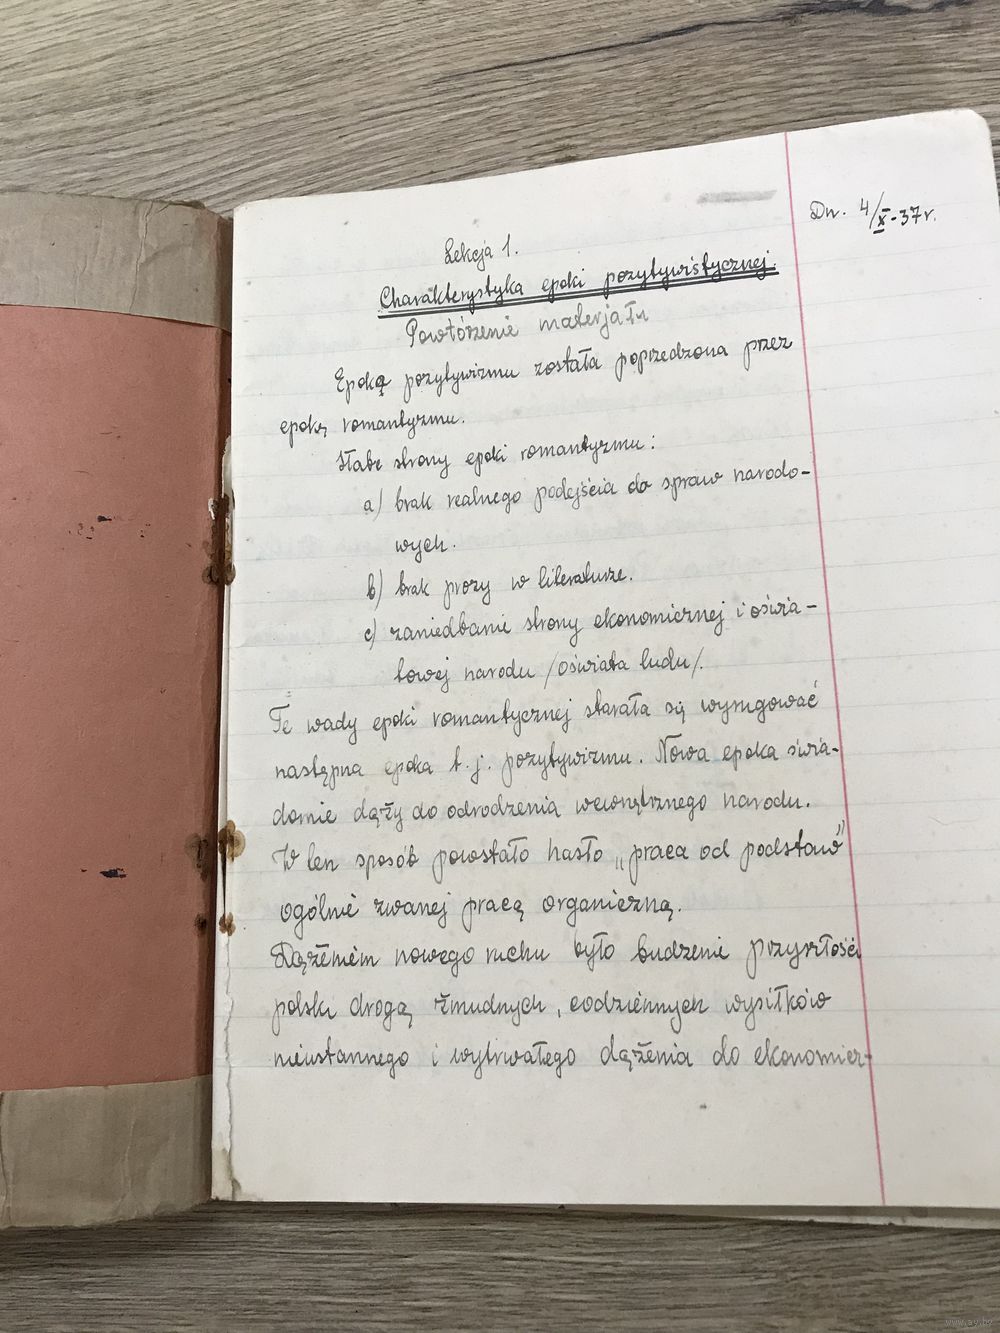 Dn. 4/X-37r.
Lekcja 1.
Charakterystyka epoki pozytywistycznej.
Powtórzenie materjału
Epoka pozytywizmu została poprzedzona przez
epokę romantyzmu.
Słabe strony epoki romantyzmu:
a) brak realnego podejścia do spraw narodo-
wych.
b) brak prozy w literaturze.
c) zaniedbanie strony ekonomicznej i oświa-
towej narodu /oświata ludu/.
Te wady epoki romantycznej starała się wyrugować
następna epoka t.j. pozytywizmu. Nowa epoka świa-
domie dąży do odrodzenia wewnętrznego narodu.
W ten sposób powstało hasło „praca od podstaw"
ogólnie zwanej pracą organiczną.
Dążeniem nowego ruchu było budzenie przyszłości
polski drogą żmudnych, codziennych wysiłków
nieustannego i wytrwałego dążenia do ekonomicz-
www.ay.by